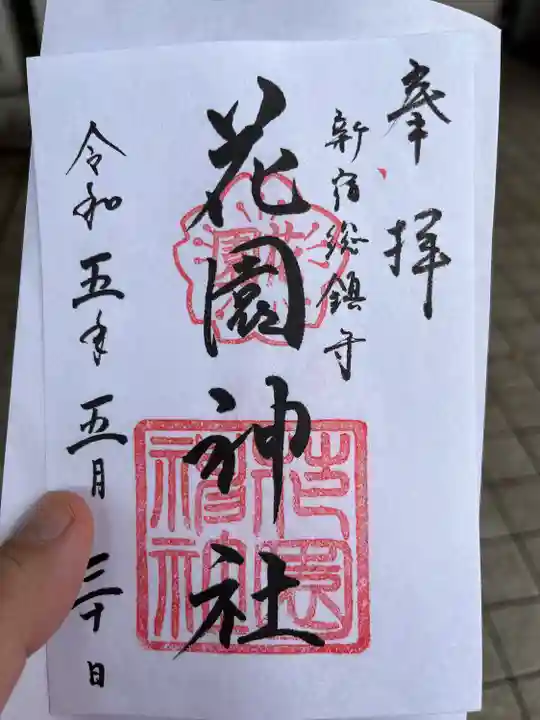 奉拝
新宿総鎮守
花園神社
令和五年五月三十日
花園